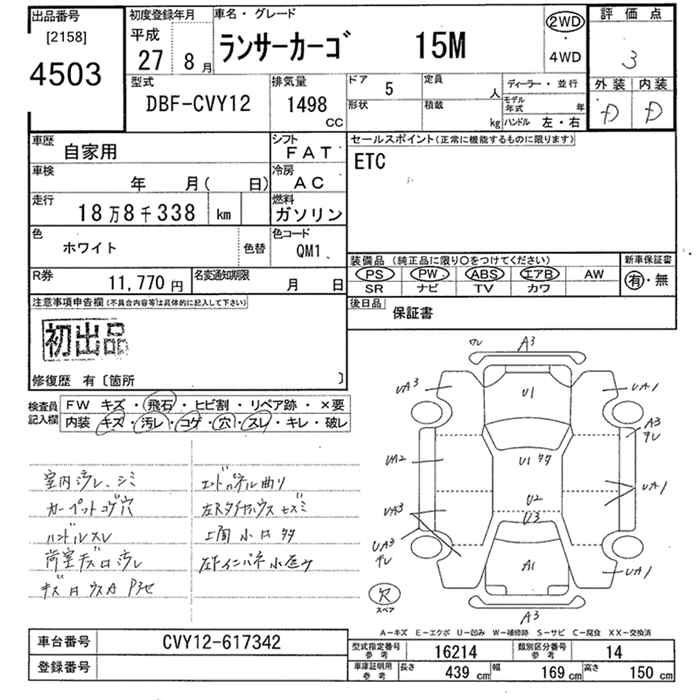 出品番号
[2158]
4503
初度登録年月
平成
27年 8月
車名・グレード
ランサーカーゴ 15M
2WD
・
4WD
評価点
3
外装 内装
D D
型式
DBF-CVY12
排気量
1498
CC
ドア
5
定員
人
形状
積載
kg
ディーラー・並行
モデル年式 年
ハンドル 左・右
車歴
自家用
シフト
FAT
車検
年 月( 日)
冷房
AC
走行
18万8千338 km
燃料
ガソリン
色
ホワイト
色替
色コード
QM1
R券
11,770円
名変通知期限
月 日
セールスポイント(正常に機能するものに限ります)
ETC
装備品 (純正品に限り○をつけてください)
PS PW ABS エアB AW
SR ナビ TV カワ
新車保証書
有・無
後日品
保証書
注意事項申告欄(不具合内容等は具体的に記入して下さい)
初出品
修復歴 有〔箇所 〕
検査員
記入欄
FW キズ・飛石・ヒビ割・リペア跡・×要
内装 キズ・汚レ・コゲ・穴・スレ・キレ・破レ
室内汚レ、シミ
カーペットコゲ穴
ハンドルスレ
荷室キズロ汚レ
エンドパネル曲り
上面小ロタタ
ワレ
A3
UA3
U1
UA1
A3
UA2
U1 タタ
U2
U3
UA1
UA3
UA3
A1
UA1
A3
スペア
A-キズ E-エクボ U-凹み W-補修跡 S-サビ C-腐食 XX-交換済
車台番号
CVY12-617342
登録番号
型式指定番号
参考
16214
類別区分番号
参考
14
車庫証明用
参考
長さ 439 cm 幅 169 cm 高さ 150 cm